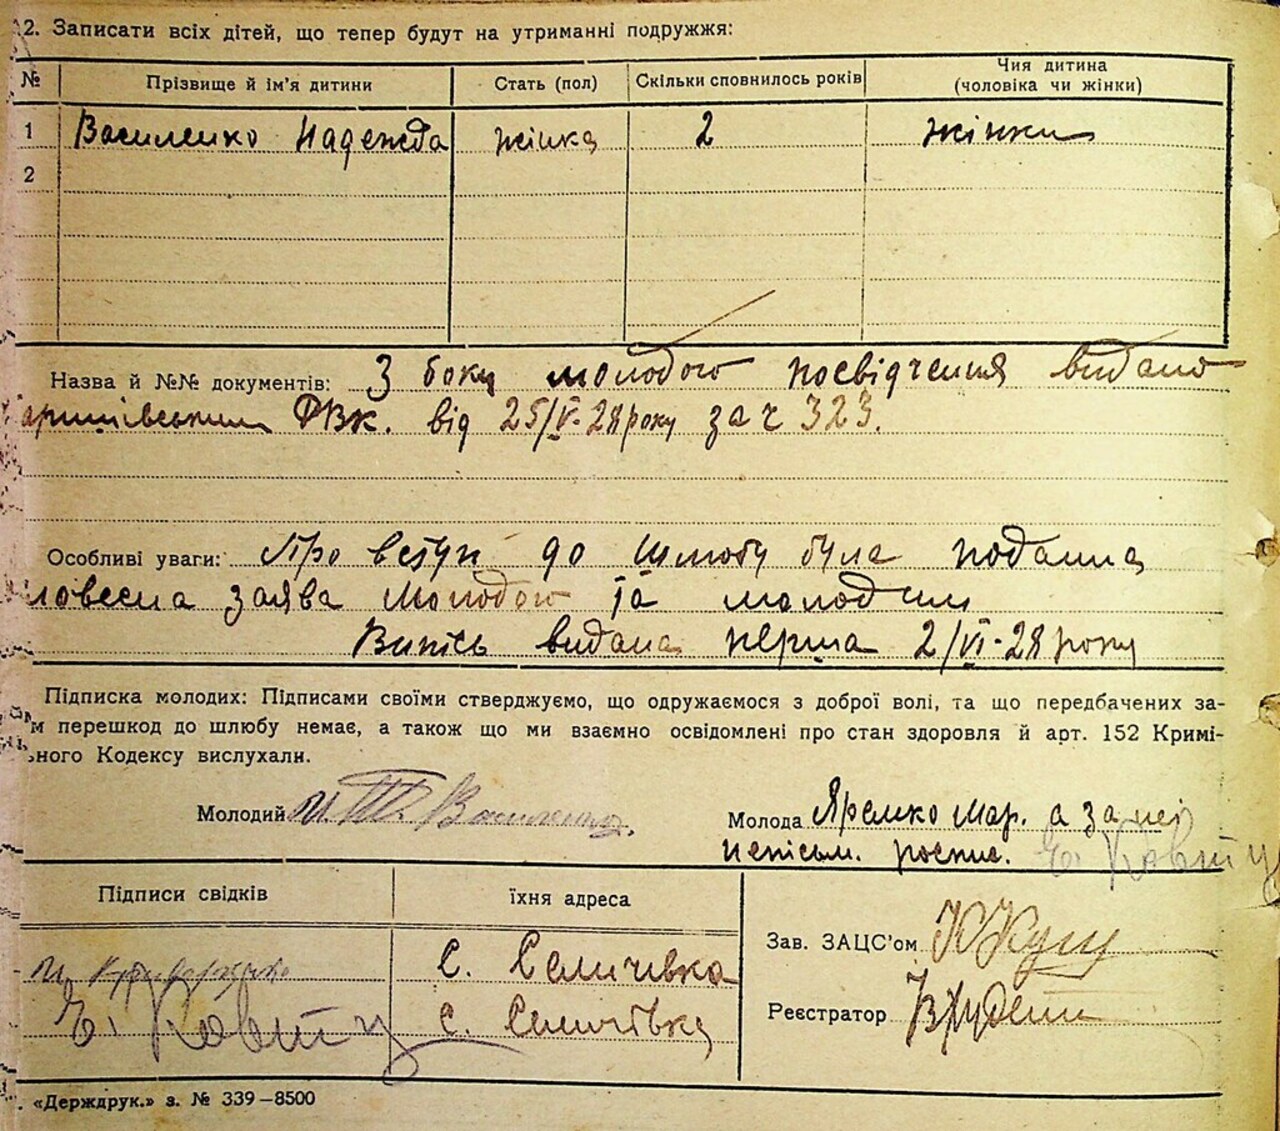 2. Записати всіх дітей, що тепер будут на утриманні подружжя:
№ Прізвище й ім'я дитини Стать (пол) Скільки сповнилось років Чия дитина (чоловіка чи жінки)
1 Василенко Надежда жінка 2 жінки
2
Назва й №№ документів: З боку молодого посвідчення видано
РВК. від 25/V-28 року за ч 323.
Особливі уваги: Про вступ до шлюбу була подана
ловесна заява молодою та молодим
Випись видана перша 2/VI-28 року
Підписка молодих: Підписами своїми стверджуємо, що одружаємося з доброї волі, та що передбачених за-
м перешкод до шлюбу немає, а також що ми взаємно освідомлені про стан здоровля й арт. 152 Кримі-
ного Кодексу вислухали.
Молодий Василенко. Молода Яремко Мар. а за неї
непісьм. роспис. Є. Ковтун
Підписи свідків їхня адреса
Зав. ЗАЦС'ом
с. Селичівка
Є. Ковтун с. Селичівка
Реєстратор
«Держдрук.» з. № 339—8500